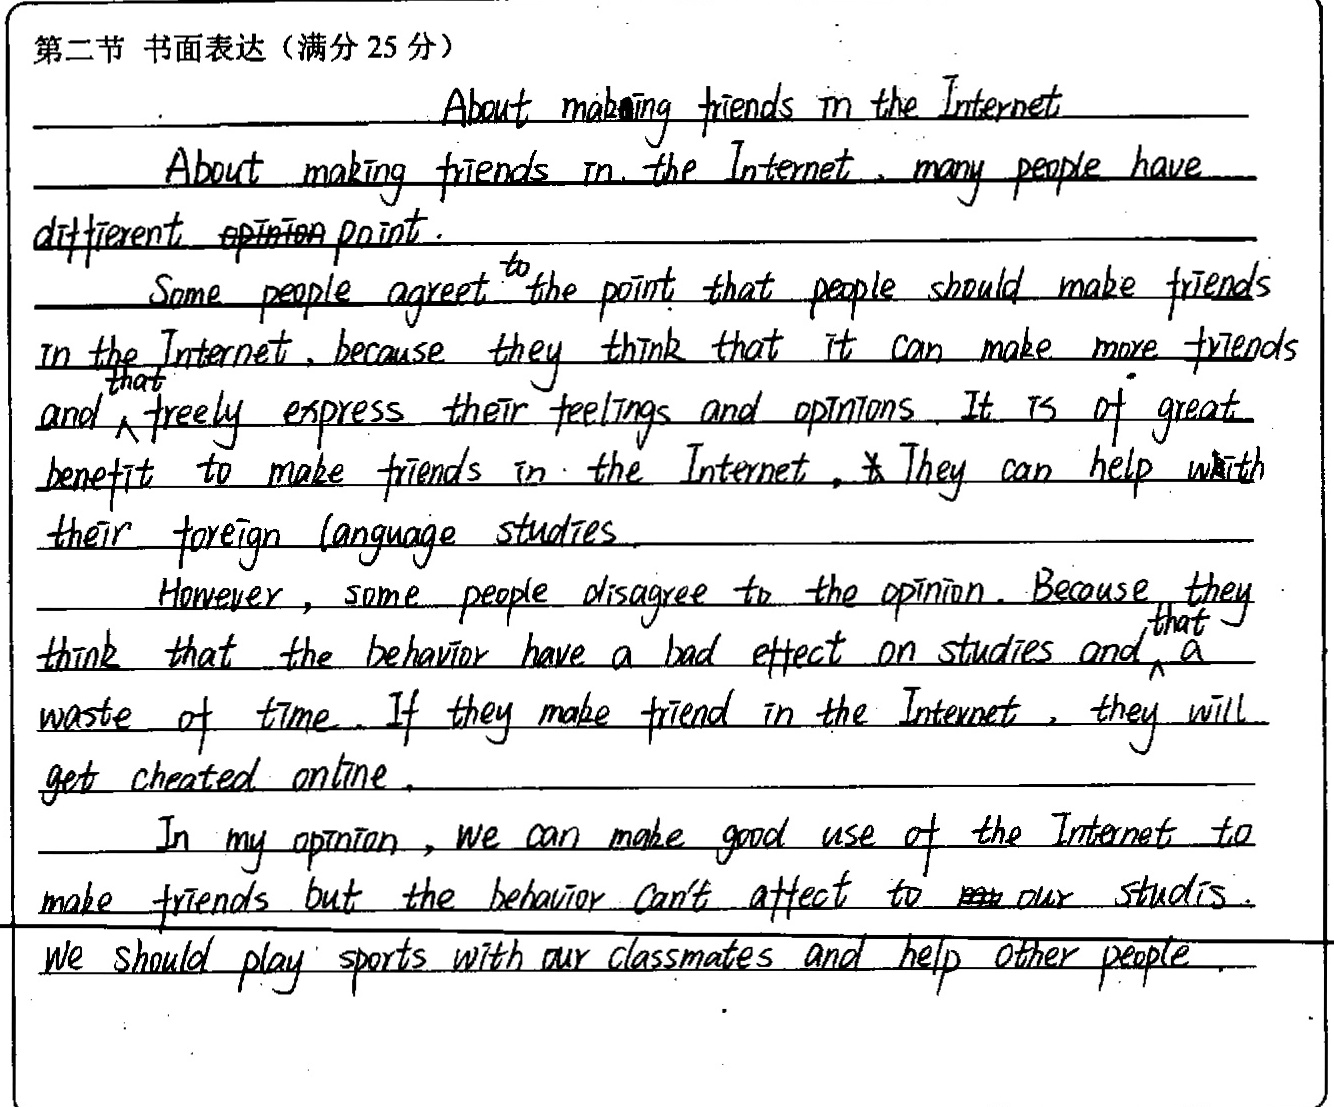 第二节 书面表达（满分 25 分）
About making friends in the Internet
About making friends in the Internet, many people have
diffierent opinion point.
Some people agreet to the point that people should make friends
in the Internet, because they think that it can make more friends
and that freely express their feelings and opinions. It is of great
benefit to make friends in the Internet. They can help with
their foreign language studies.
However, some people disagree to the opinion. Because they
think that the behavior have a bad effect on studies and that a
waste of time. If they make friend in the Internet, they will
get cheated online.
In my opinion, we can make good use of the Internet to
make friends but the behavior can't affect to our studis.
We should play sports with our classmates and help other people.